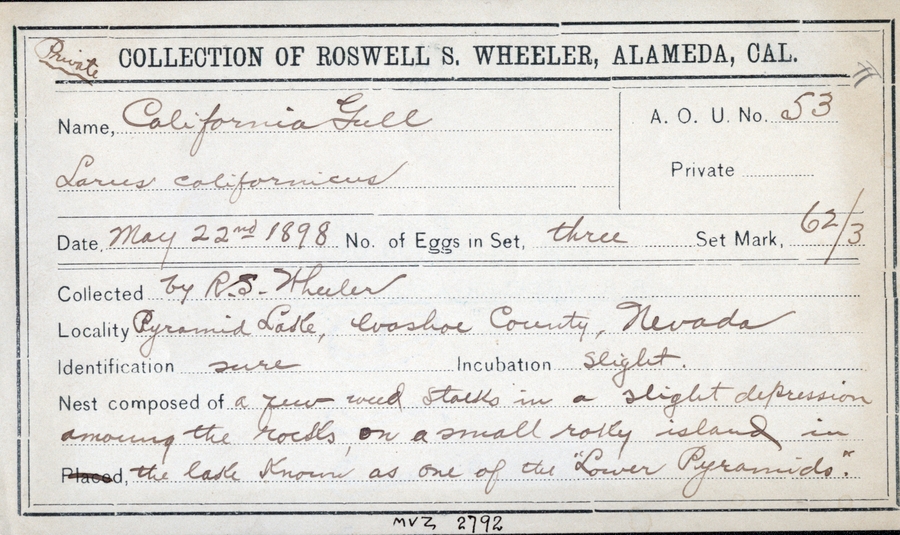 Private
COLLECTION OF ROSWELL S. WHEELER, ALAMEDA, CAL.
Name, California Gull
A. O. U. No. 53
Larus californicus
Private
Date, May 22nd 1898 No. of Eggs in Set, three Set Mark, 62/3
Collected by R.S. Wheeler
Locality Pyramid Lake, Washoe County, Nevada
Identification sure Incubation slight.
Nest composed of a few weed stalks in a slight depression
among the rocks, on a small rocky island in
Placed, the lake known as one of the "Lower Pyramids".
MVZ 2792